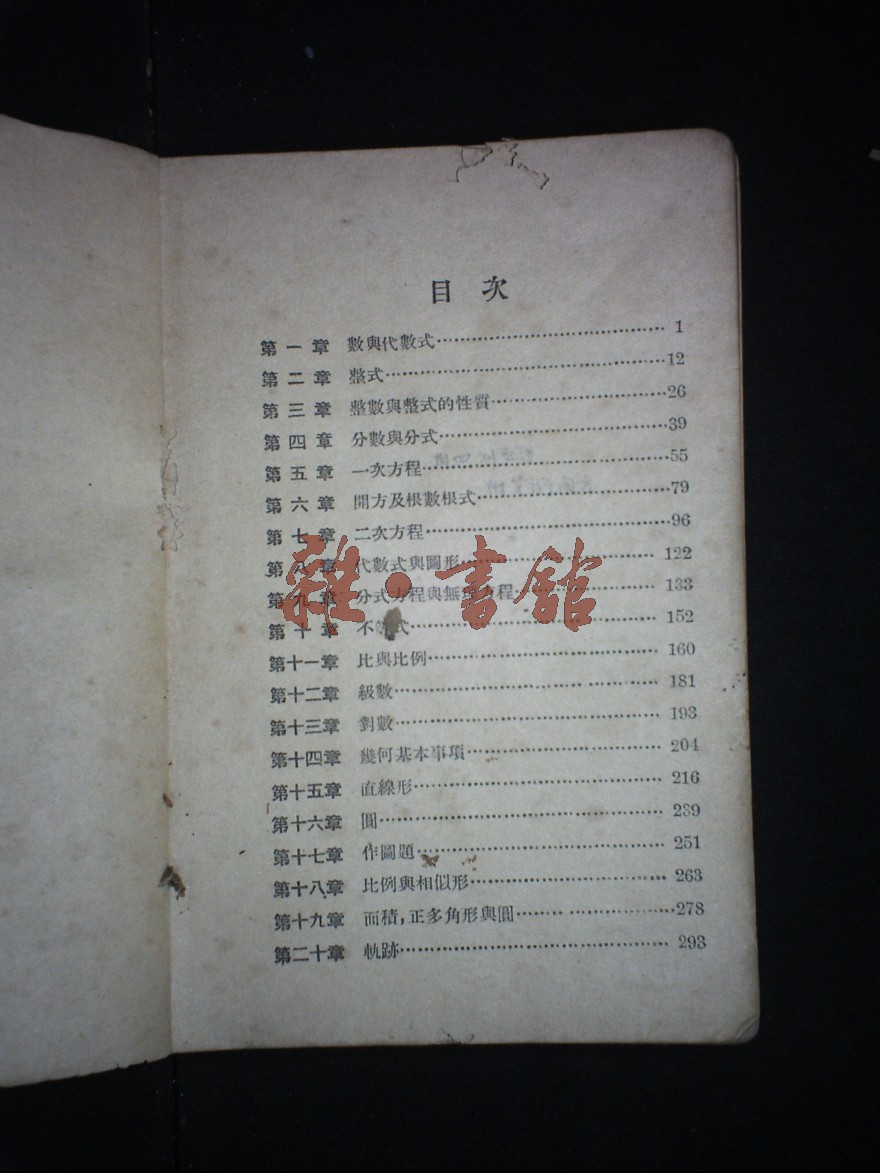 目次
第一章 數與代數式……………………………… 1
第二章 整式………………………………………12
第三章 整數與整式的性質………………………26
第四章 分數與分式………………………………39
第五章 一次方程…………………………………55
第六章 開方及根數根式…………………………79
第七章 二次方程…………………………………96
第八章 代數式與圖形……………………………122
第九章 分式方程與無理方程……………………133
雜·書館
第十章 不等式……………………………………152
第十一章 比與比例………………………………160
第十二章 級數……………………………………181
第十三章 對數……………………………………193
第十四章 幾何基本事項…………………………204
第十五章 直線形…………………………………216
第十六章 圓………………………………………239
第十七章 作圖題…………………………………251
第十八章 比例與相似形…………………………263
第十九章 面積,正多角形與圓……………………278
第二十章 軌跡……………………………………293